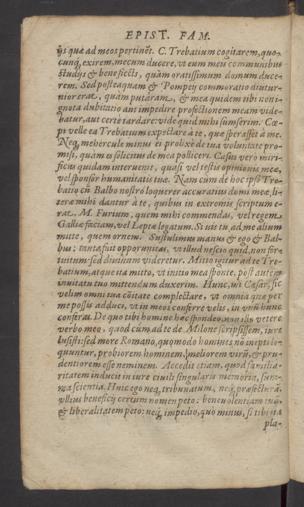 EPIST. FAM.
ijs quæ ad meos pertinẽt. C. Trebatium cogitarem, quo-
cunq, exirem, mecum ducere, vt eum meis omnibus
studijs & beneficijs, quàm ornatissimum domum duce-
rem. Sed posteaquam & Pompeij commoratio diutur-
nior erat, quàm putaram, & mea quædam tibi non i-
gnota dubitatio aut impedire profectionem meam vide-
batur, aut certè tardare: vide quid mihi sumpserim. Cœ-
pi velle ea Trebatium expectare à te, quæ sperasset à me.
Neq, mehercule minus ei prolixè de tua voluntate pro-
misi, quàm eram solitus de mea polliceri. Casus verò miri-
ficus quidam interuenit, quasi vel testis opinionis meæ,
vel sponsor humanitatis tuæ. Nam cum de hoc ipso Treba-
tio cũ Balbo nostro loquerer accuratius domi meæ, li-
teræ mihi dantur à te, quibus in extremis scriptum e-
rat. M. Furium, quem mihi commendas, vel regem
Galliæ faciam, vel Leptæ legatum. Si vis tu, ad me alium
mitte, quem ornem. Sustulimus manus & ego & Bal-
bus: tanta fuit opportunitas, vt illud nescio quid, non for-
tuitum: sed diuinum videretur. Mitto igitur ad te Tre-
batium, atque ita mitto, vt initio mea sponte, post autem
inuitatu tuo mittendum duxerim. Hunc, mi Cæsar, sic
velim omni tua comitate complectare, vt omnia quæ per
me possis adduci, vt in meos conferre velis, in vnũ hunc
conferas. De quo tibi homine hæc spondeo, non illo vetere
verbo meo, quod cùm ad te de Milone scripsissem, iure
lusisti: sed more Romano, quomodo homines nõ inepti lo-
quuntur, probiorem hominem, meliorem virũ, & pru-
dentiorem esse neminem. Accedit etiam, quod familia-
ritatem inducit in iure ciuili singularis memoria, sum-
ma scientia. Huic ego neq, tribunatum, neq, præfecturã,
vllius beneficij certum nomen peto: beneuolentiam tuã,
& liberalitatem peto: neq, impedio, quo minus, si tibi ita
pla-